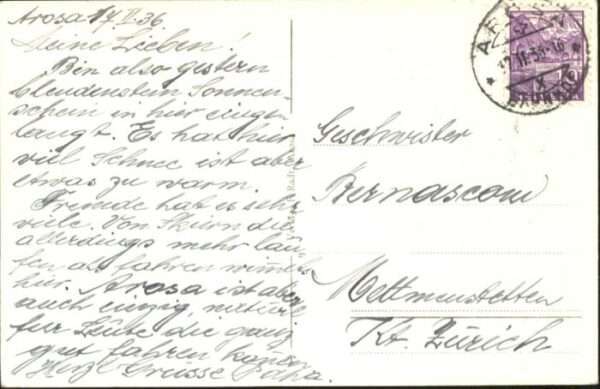 Arosa 17. II. 36
Meine Lieben!
Bin also gestern
blendenstem Sonnen-
schein in hier einge-
langt. Es hat hier
viel Schnee ist aber
etwas zu warm.
Fremde hat es sehr
viele. Von Skiern die
allerdings mehr lau-
fen als fahren
hier. Arosa ist aber
auch einzig, natürl.
für Leute die ganz
gut fahren können.
Herzl. Grüsse
Geschwister
Bernasconi
Mettmenstetten
Kt. Zürich